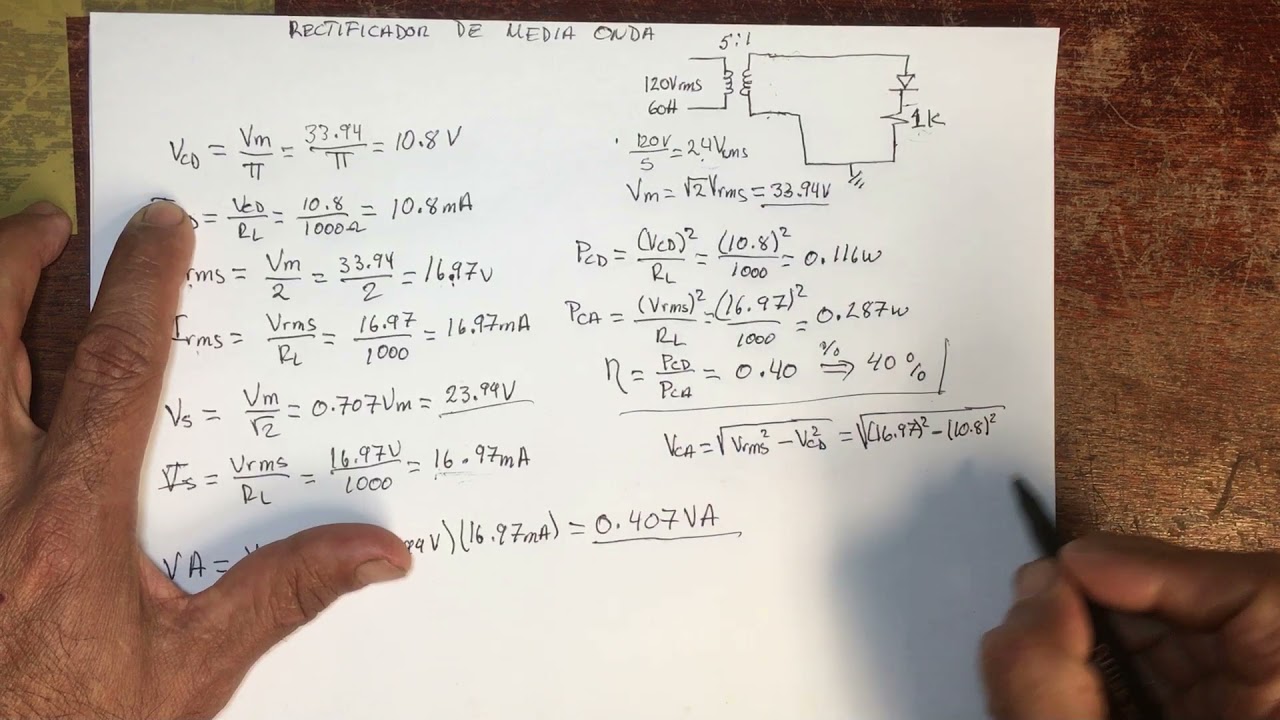 RECTIFICADOR DE MEDIA ONDA
5:1
120Vrms
60H
1K
120V/5 = 24Vrms
Vm = √2 Vrms = 33.94V
V_CD = Vm/π = 33.94/π = 10.8 V
= V_CD/R_L = 10.8/1000Ω = 10.8mA
rms = Vm/2 = 33.94/2 = 16.97V
Irms = Vrms/R_L = 16.97/1000 = 16.97mA
Vs = Vm/√2 = 0.707Vm = 23.99V
Is = Vrms/R_L = 16.97V/1000 = 16.97mA
VA = (16.97mA) = 0.407VA
P_CD = (V_CD)²/R_L = (10.8)²/1000 = 0.116W
P_CA = (Vrms)²/R_L = (16.97)²/1000 = 0.287W
η = P_CD/P_CA = 0.40 ⇒ % 40%
V_CA = √(Vrms² − V_CD²) = √((16.97)² − (10.8)²)